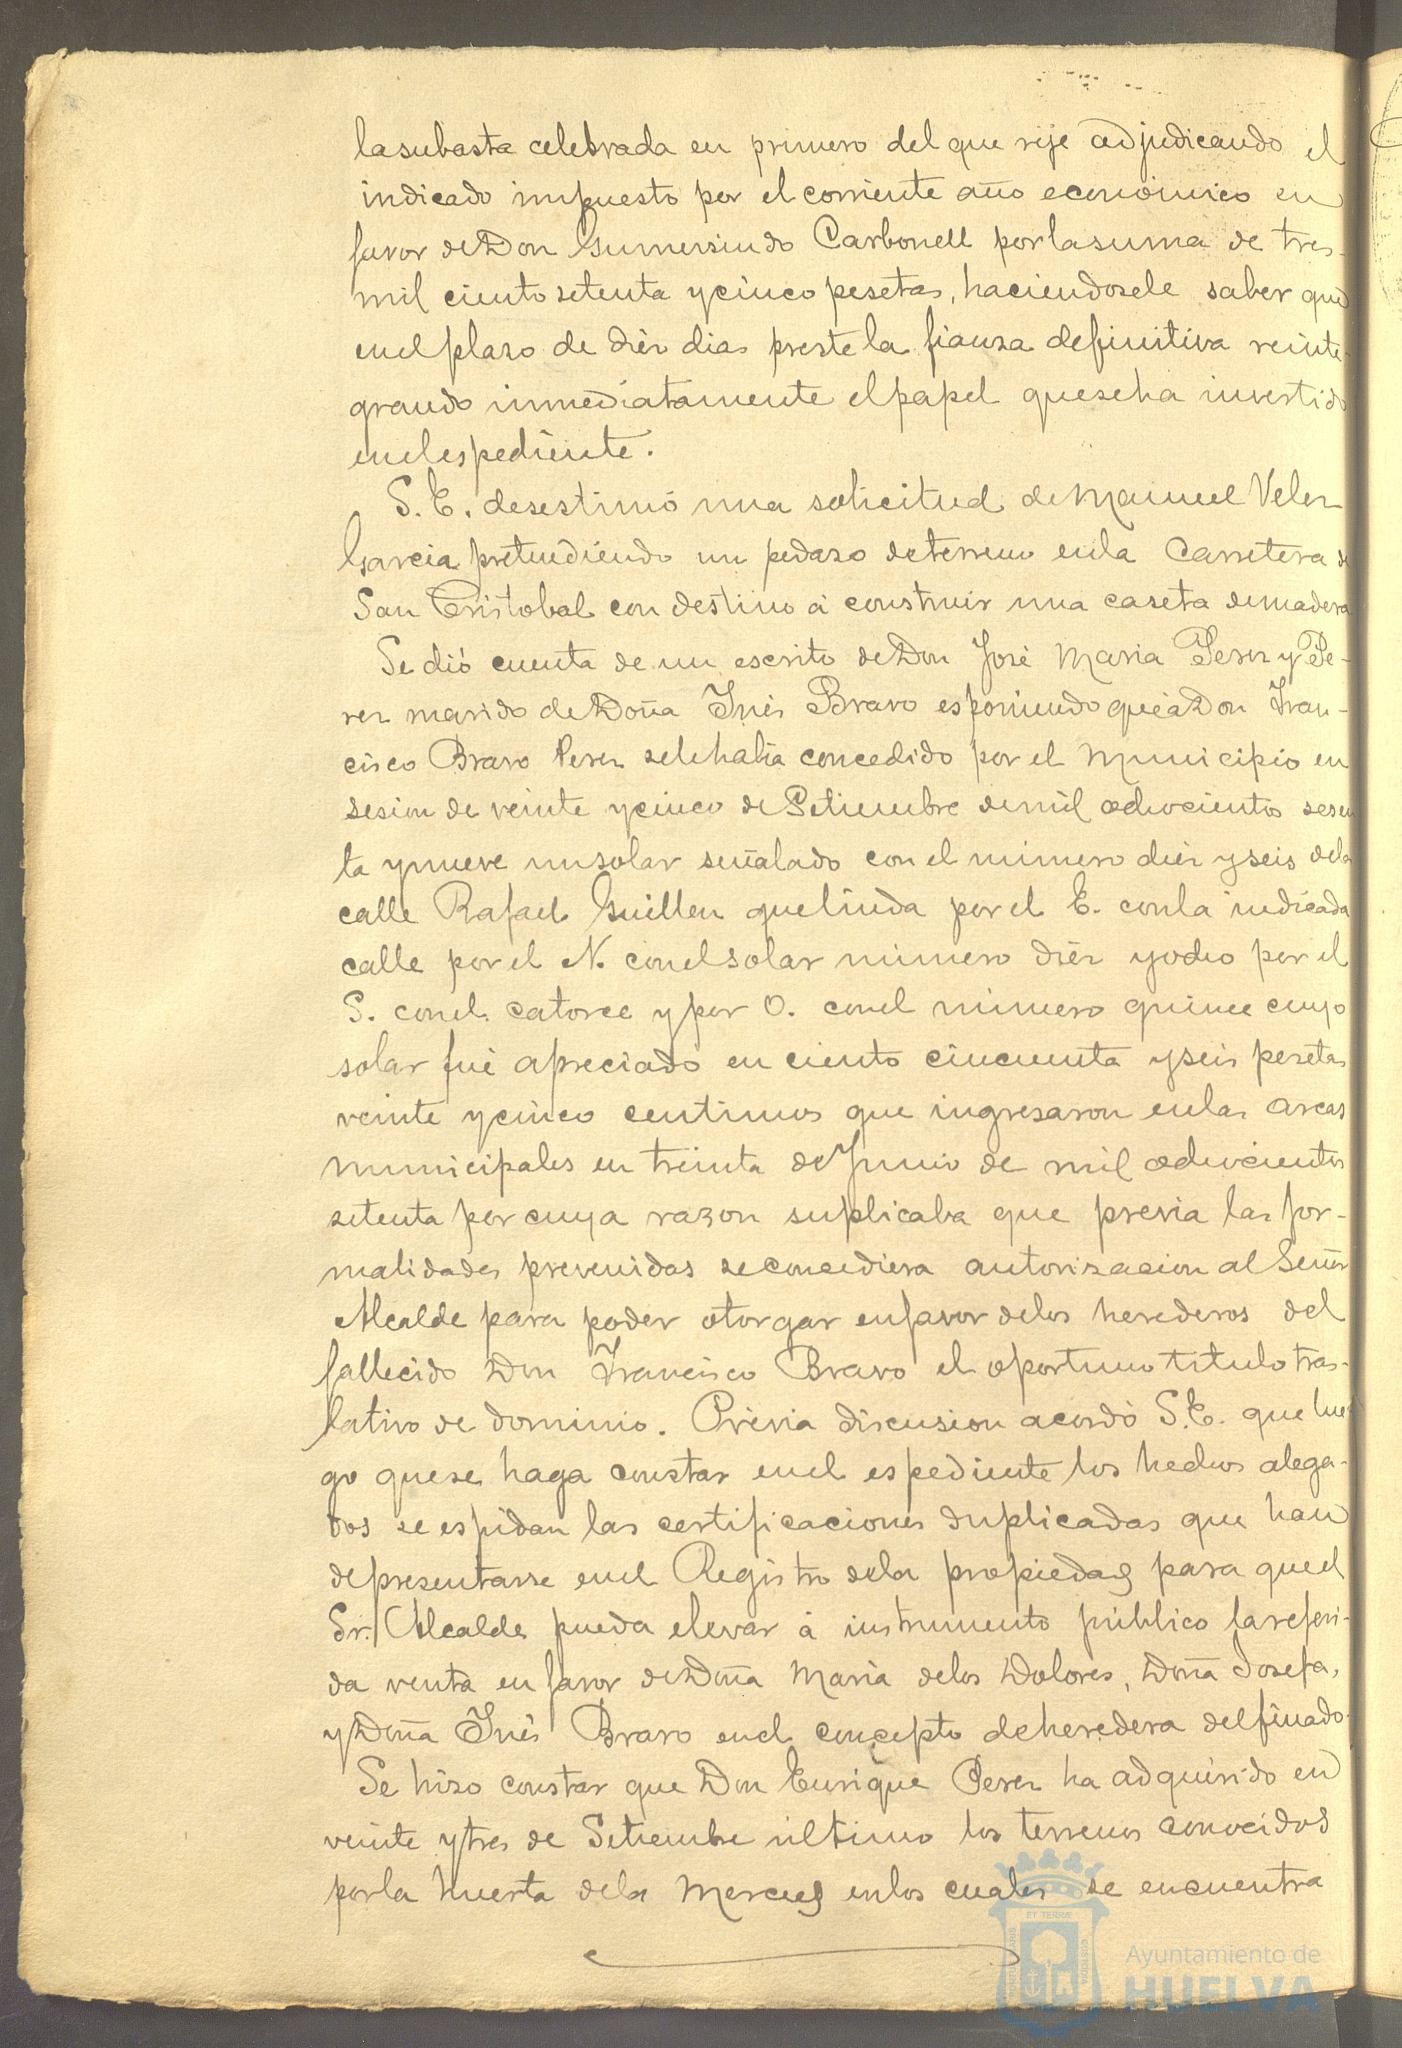 la subasta celebrada en primero del que rije adjudicando el
indicado impuesto por el corriente año económico en
favor de Don Gumersindo Carbonell por la suma de tres
mil ciento setenta y cinco pesetas, haciendosele saber que
en el plazo de diez dias preste la fianza definitiva reinte-
grando inmediatamente el papel que se ha invertido
en el espediente.
S. E. desestimó una solicitud de Manuel Velez
Garcia pretendiendo un pedazo de terreno en la Carretera de
San Cristobal con destino á construir una caseta de madera
Se dió cuenta de un escrito de Don José Maria Perez y Pe-
rez marido de Doña Inés Bravo esponiendo que á Don Fran-
cisco Bravo Perez se le habia concedido por el Municipio en
sesion de veinte y cinco de Setiembre de mil ochocientos sesen
ta y nueve un solar señalado con el número diez y seis de la
calle Rafael Guillen que linda por el E. con la indicada
calle por el N. con el solar número diez y ocho por el
S. con el catorce y por O. con el número quince cuyo
solar fué apreciado en ciento cincuenta y seis pesetas
veinte y cinco centimos que ingresaron en las arcas
municipales en treinta de Junio de mil ochocientos
setenta por cuya razon suplicaba que previa las for-
malidades prevenidas se concediera autorizacion al Señor
Alcalde para poder otorgar en favor de los herederos del
fallecido Don Francisco Bravo el oportuno titulo tras-
lativo de dominio. Prévia discusion acordó S. E. que lue-
go que se haga constar en el espediente los hechos alega-
dos se espidan las certificaciones duplicadas que han
de presentarse en el Registro de la propiedad para que el
Sr. Alcalde pueda elevar á instrumento público la referi-
da venta en favor de Doña Maria de los Dolores, Doña Josefa,
y Doña Inés Bravo en el concepto de heredera del finado.
Se hizo constar que Don Enrique Perez ha adquirido en
veinte y tres de Setiembre último los terrenos conocidos
por la huerta de la Merced en los cuales se encuentra
ET TERRÆ
Ayuntamiento de
HUELVA